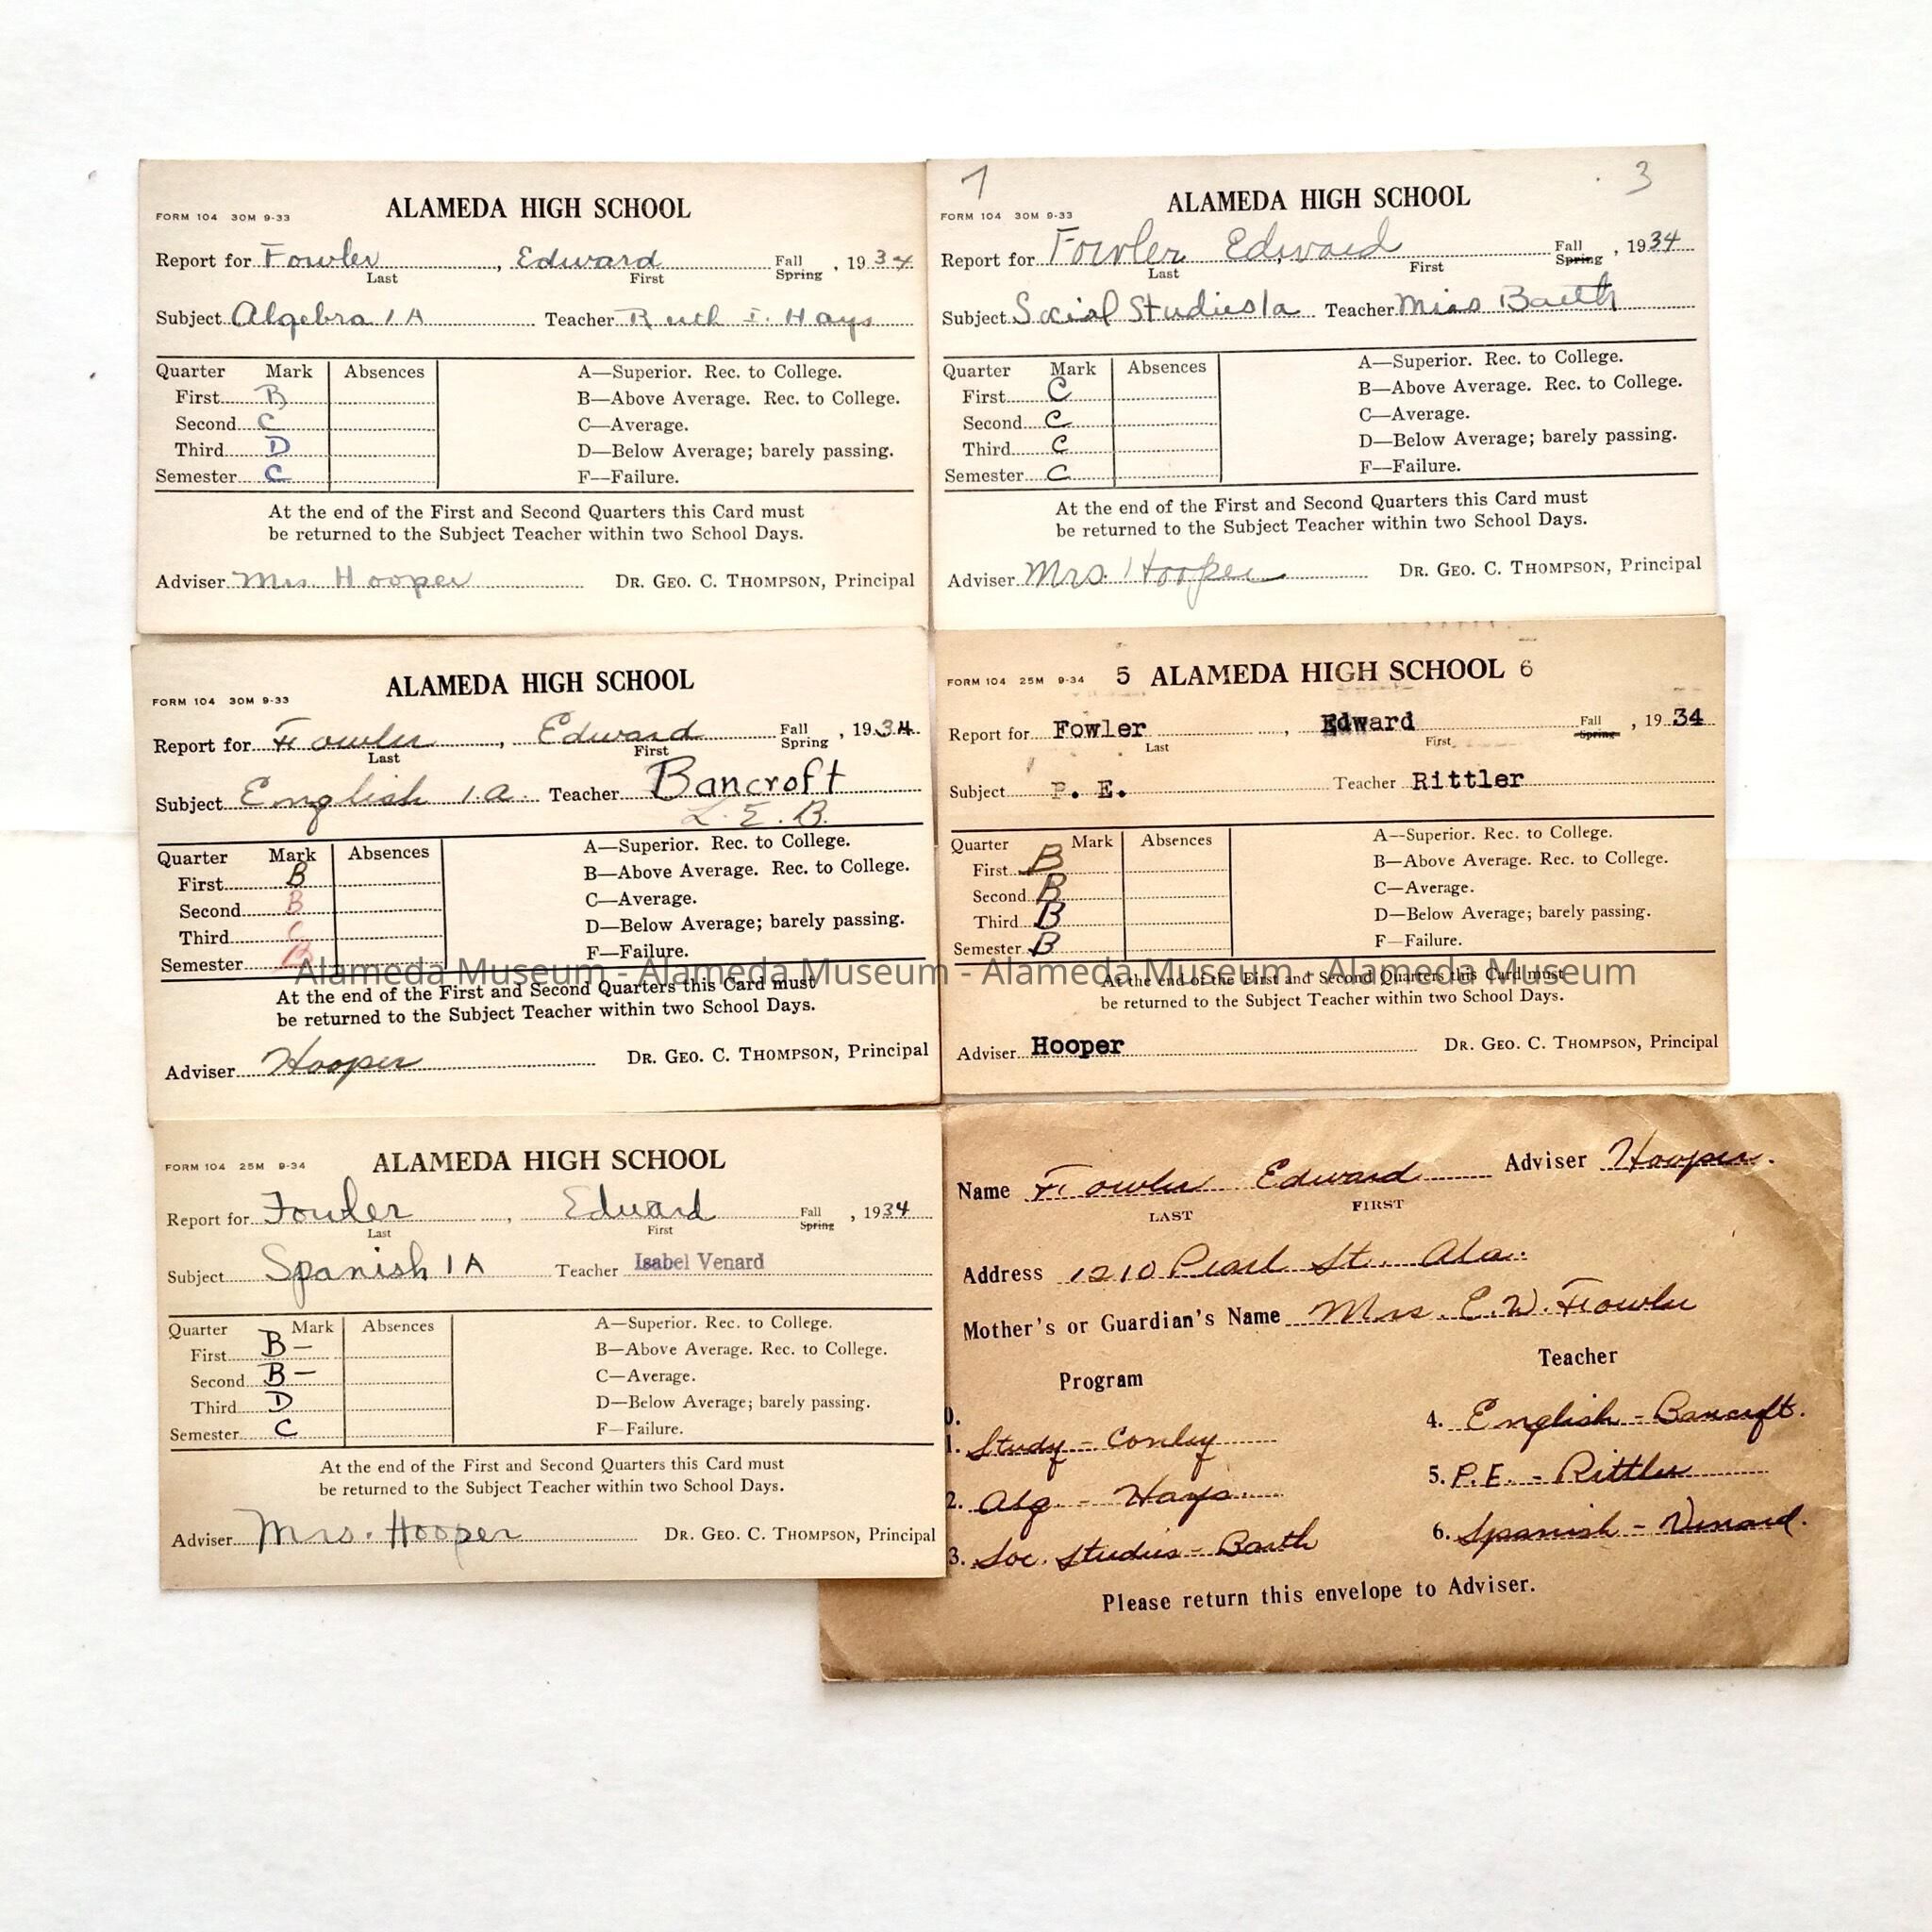 FORM 104 30M 9-33
ALAMEDA HIGH SCHOOL
Report for Fowler, Edward Fall Spring, 1934
Last First
Subject Algebra 1A Teacher Ruth I. Hays
Quarter Mark Absences
First B
Second C
Third D
Semester C
A—Superior. Rec. to College.
B—Above Average. Rec. to College.
C—Average.
D—Below Average; barely passing.
F—Failure.
At the end of the First and Second Quarters this Card must
be returned to the Subject Teacher within two School Days.
Adviser Mrs. Hooper DR. GEO. C. THOMPSON, Principal
3
FORM 104 30M 9-33
ALAMEDA HIGH SCHOOL
Report for Fowler Edward Fall Spring, 1934
Last First
Subject Social Studies 1a Teacher Miss Barth
Quarter Mark Absences
First C
Second C
Third C
Semester C
A—Superior. Rec. to College.
B—Above Average. Rec. to College.
C—Average.
D—Below Average; barely passing.
F—Failure.
At the end of the First and Second Quarters this Card must
be returned to the Subject Teacher within two School Days.
Adviser Mrs. Hooper DR. GEO. C. THOMPSON, Principal
FORM 104 30M 9-33
ALAMEDA HIGH SCHOOL
Report for Fowler, Edward Fall Spring, 1934
Last First
Subject English 1a. Teacher Bancroft
L. E. B.
Quarter Mark Absences
First B
Second B
Third C
Semester B
A—Superior. Rec. to College.
B—Above Average. Rec. to College.
C—Average.
D—Below Average; barely passing.
F—Failure.
At the end of the First and Second Quarters this Card must
be returned to the Subject Teacher within two School Days.
Adviser Hooper DR. GEO. C. THOMPSON, Principal
FORM 104 25M 9-34
5 ALAMEDA HIGH SCHOOL 6
Report for Fowler, Edward Fall Spring, 1934
Last First
Subject P. E. Teacher Rittler
Quarter Mark Absences
First B
Second B
Third B
Semester B
A—Superior. Rec. to College.
B—Above Average. Rec. to College.
C—Average.
D—Below Average; barely passing.
F—Failure.
At the end of the First and Second Quarters this Card must
be returned to the Subject Teacher within two School Days.
Adviser Hooper DR. GEO. C. THOMPSON, Principal
Alameda Museum - Alameda Museum - Alameda Museum - Alameda Museum
FORM 104 25M 9-34
ALAMEDA HIGH SCHOOL
Report for Fowler, Edward Fall Spring, 1934
Last First
Subject Spanish 1A Teacher Isabel Venard
Quarter Mark Absences
First B-
Second B-
Third D
Semester C
A—Superior. Rec. to College.
B—Above Average. Rec. to College.
C—Average.
D—Below Average; barely passing.
F—Failure.
At the end of the First and Second Quarters this Card must
be returned to the Subject Teacher within two School Days.
Adviser Mrs. Hooper DR. GEO. C. THOMPSON, Principal
Name Fowler Edward Adviser Hooper.
LAST FIRST
Address 1210 Pearl St. Ala.
Mother's or Guardian's Name Mrs. E. W. Fowler
Program Teacher
0.
1. Study - Conley
2. Alg. - Hays
3. Soc. Studies - Barth
4. English - Bancroft.
5. P.E. - Rittler
6. Spanish - Venard.
Please return this envelope to Adviser.